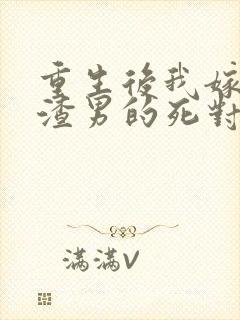 重生後我嫁
渣男的死對
滿滿V